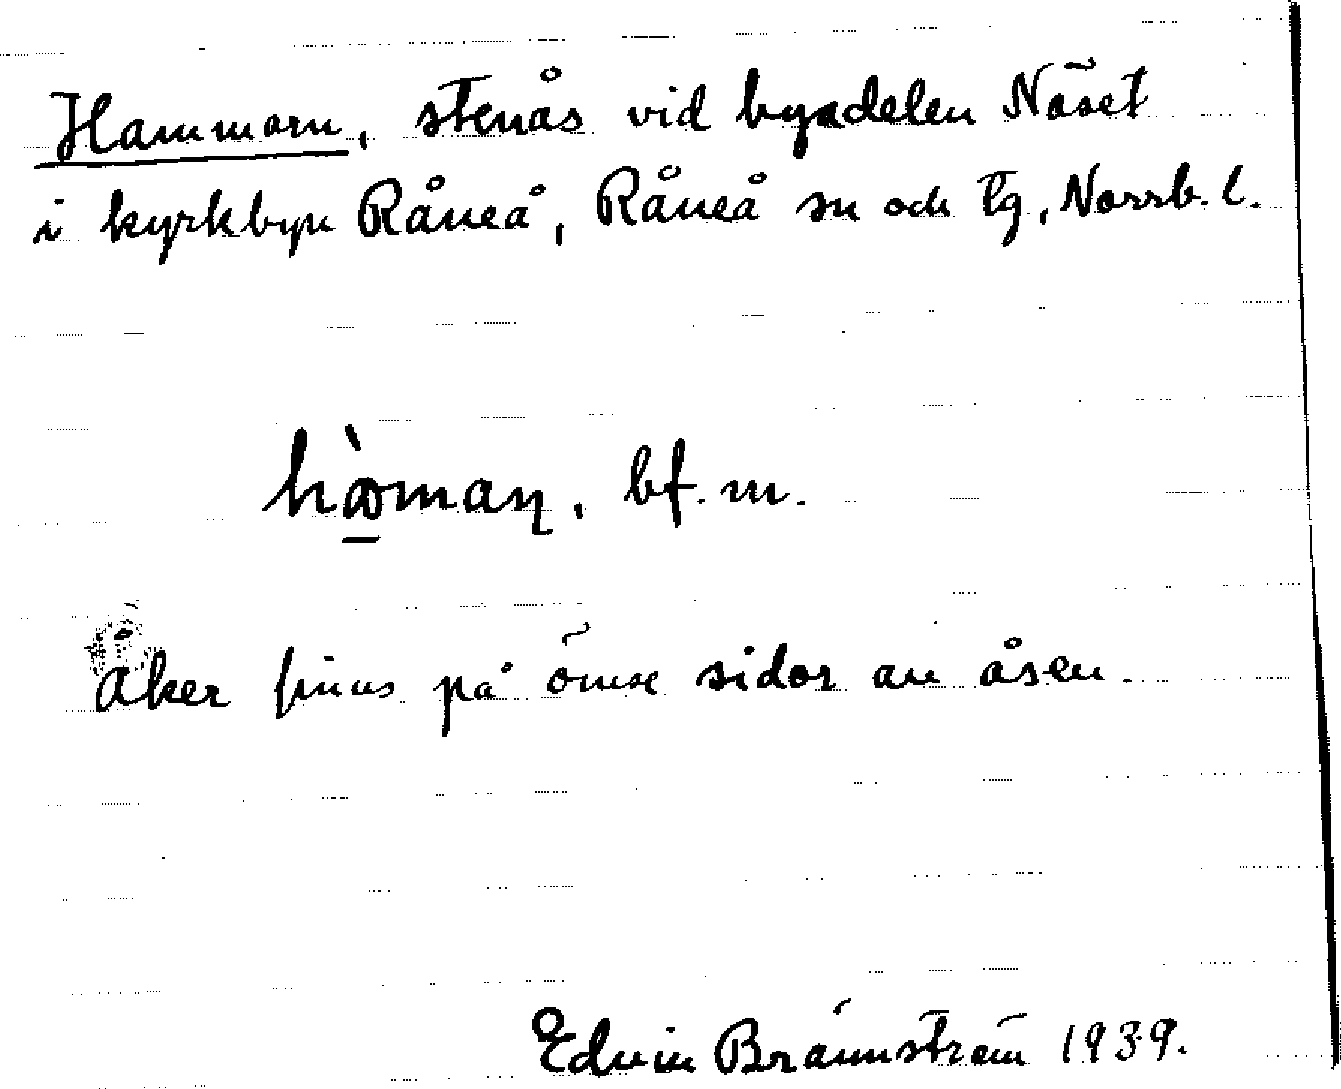 Hammarn, stenås vid byadelen Näset
i kyrkbyn Råneå, Råneå sn och tg, Norrb. l.
bf. m.
Åker finns på ömse sidor av åsen.
Edvin Brännström 1939.